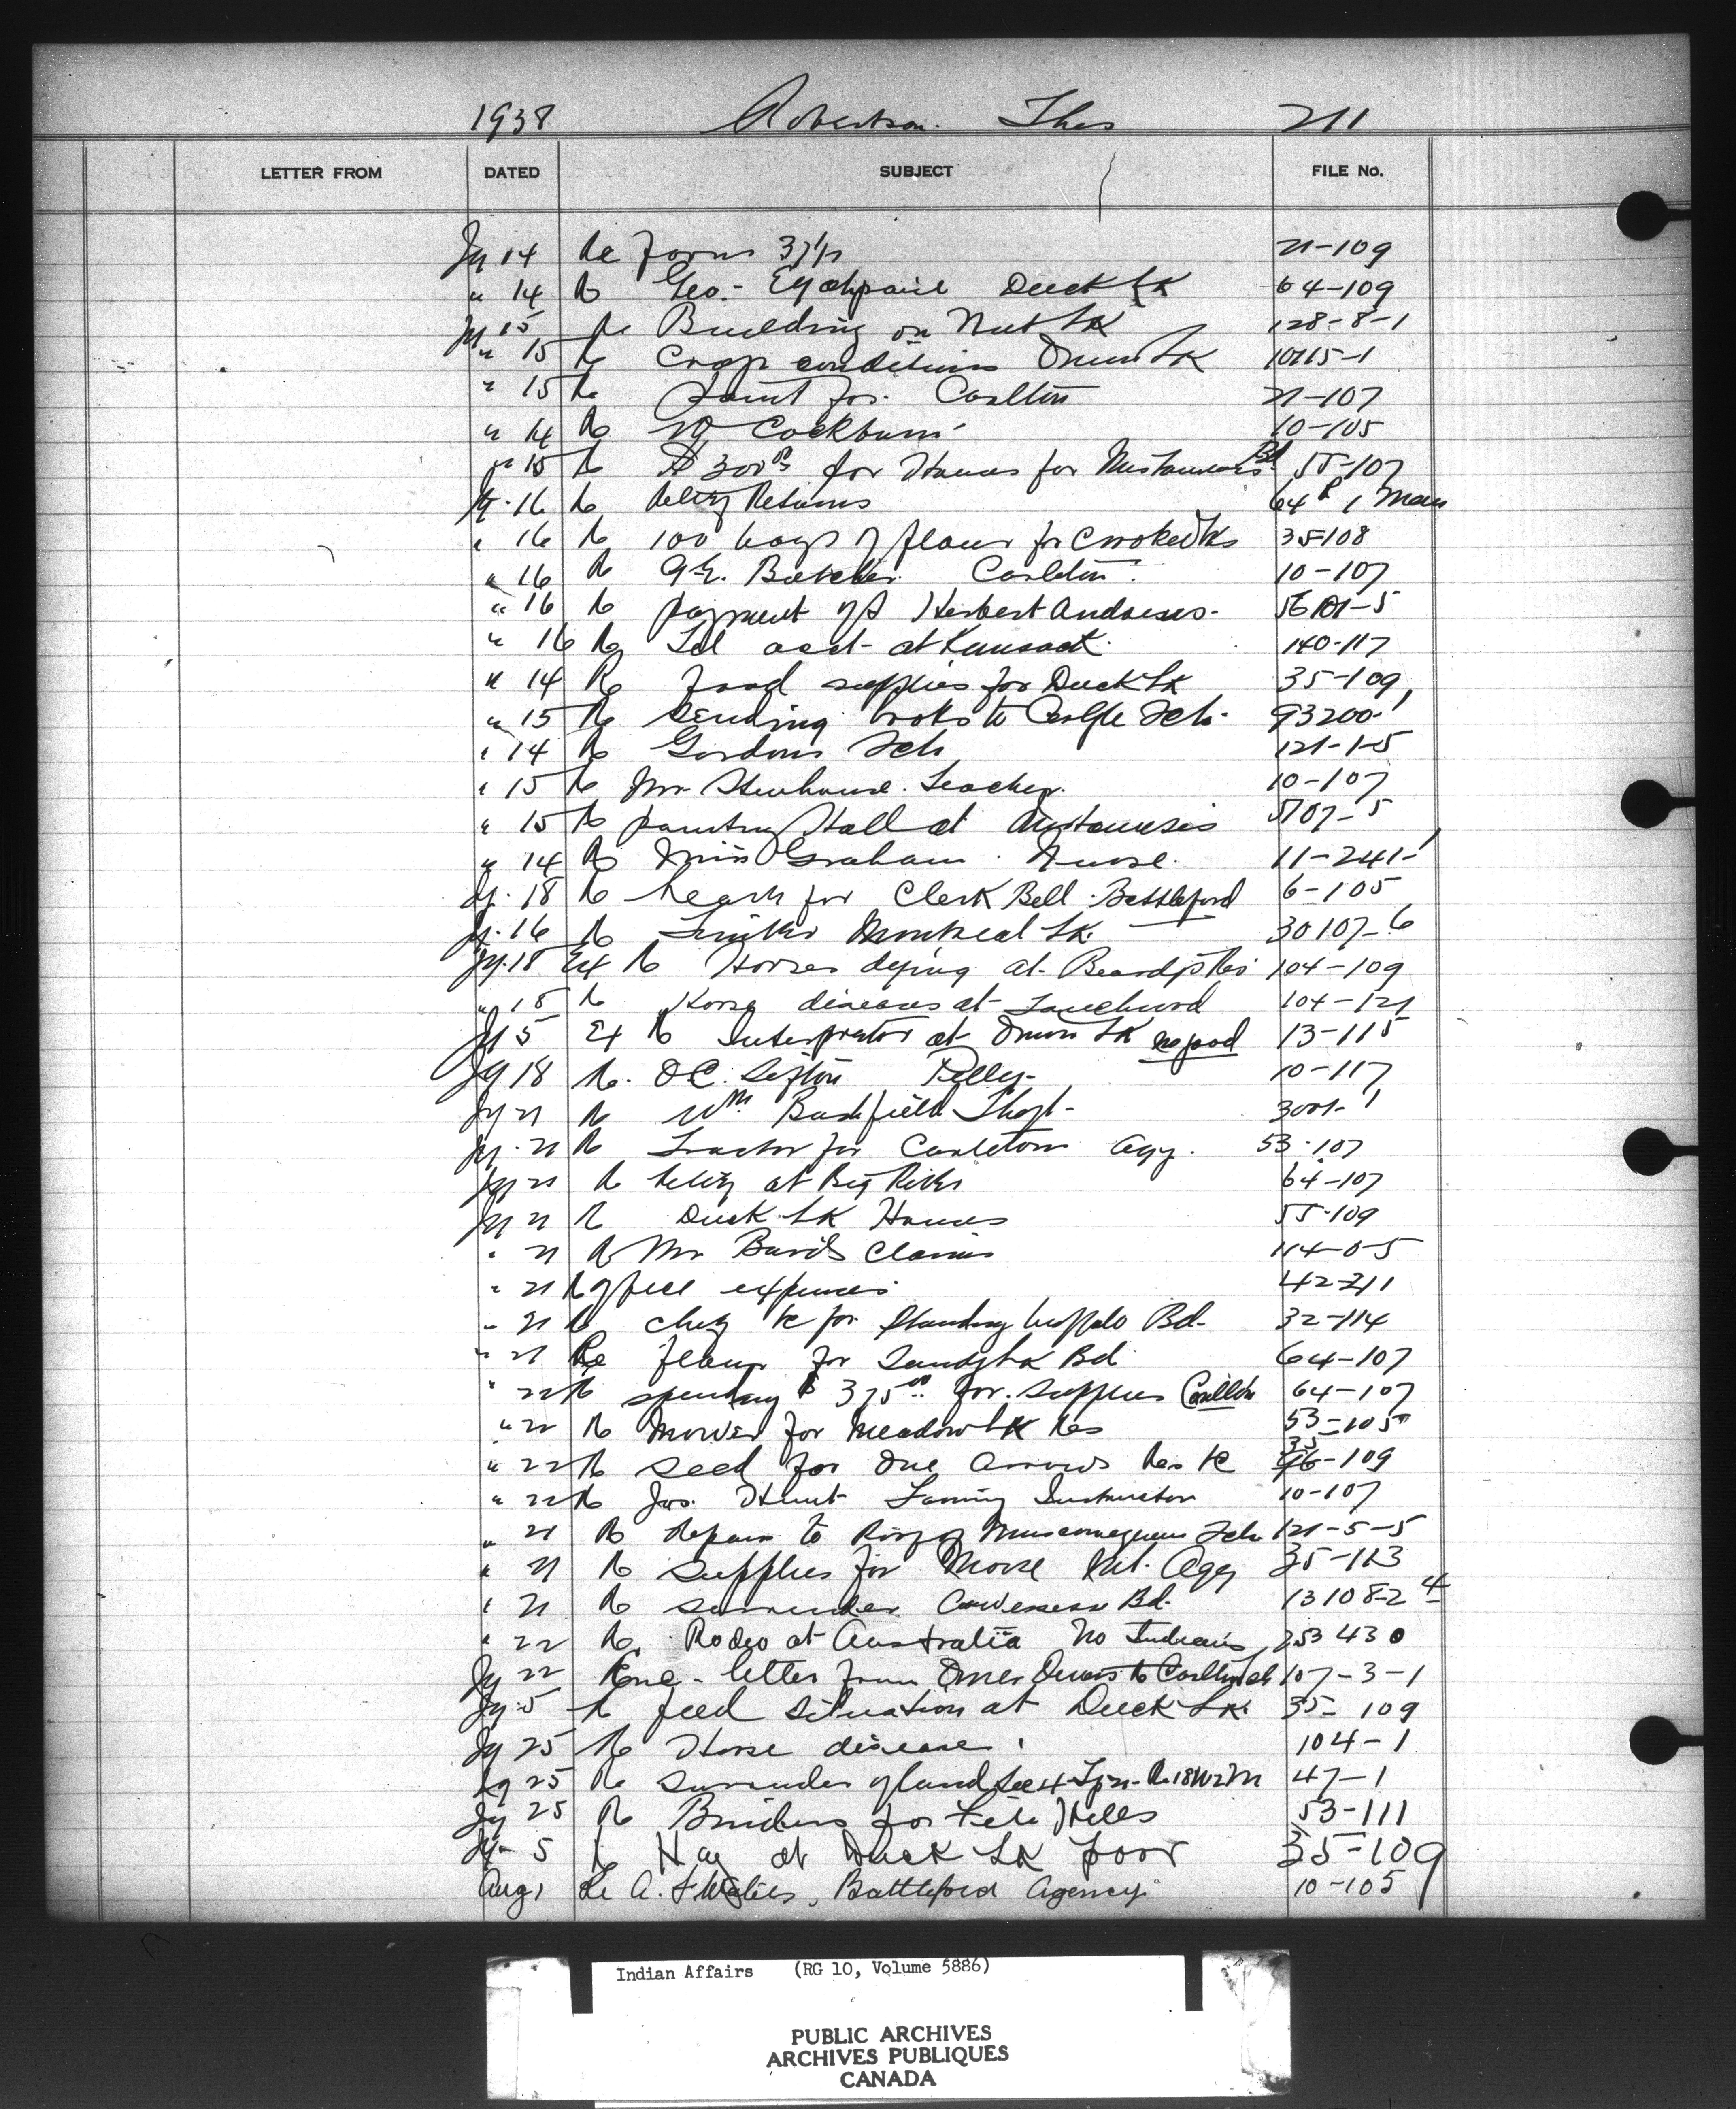 1938 Robertson. Thos 211
LETTER FROM DATED SUBJECT FILE No.
Jy 14 Re Forms 21-109
" 14 Re Geo. Duck Lk 64-109
Jy 15 Re Building on Nut Lk 128-8-1
" 15 Re Crop conditions Onion Lk 10115-1
" 15 Re Paint for Carlton 21-107
" 14 Re Cockburn 10-105
" 15 Re $300.00 for Houses for Mistawasis Bd 55-107
Jy. 16 Re Relief Returns 64
" 16 Re 100 bags of flour for Crooked Lks 35-108
" 16 Re Carleton. 10-107
" 16 Re payment of Herbert Andrews 56101-5
" 16 Re at Kamsack 140-117
" 14 Re food supplies for Duck Lk 35-109
" 15 Re sending books to Sch. 93200-1
" 14 Re Gordons Sch 121-1-5
" 15 Re Mr Stenhouse. Teacher. 10-107
" 15 Re painting Hall at Mistawasis 5107-5
" 14 Re Miss Graham. Nurse. 11-241-1
Jy. 18 Re Leave for Clerk Bell. Battleford 6-105
Jy. 16 Re Timber Montreal Lk. 30107-6
Jy. 18 Ext Re Horses dying at Beardys Res 104-109
" 18 Re Horse diseases at Touchwood 104-121
Jy 5 Ex Re Interpreter at Onion Lk no good 13-115
Jy 18 Re. D.C. Sifton Pelly- 10-117
Jy 21 Re Wm. Bushfield 3001-1
Jy. 21 Re Tractor for Carleton Agy. 53-107
Jy 21 Re Relief at Big River 64-107
Jy 21 Re Duck Lk Houses 55-109
" 21 Re Mr Claims 114-0-5
" 21 Re office expenses 42-211
" 21 Re for Standing buffalo Bd. 32-114
" 21 Re flour for Sandy Lk Bd 64-107
" 22 Re spending $375.00 for supplies Carlton 64-107
" 22 Re Mower for Meadow Lk Res 53-105
" 22 Re seed for One Arrows Res 35-109
" 22 Re Jas. Hunt Farming Instructor 10-107
" 21 Re Repairs to Roof of Muscowequan Sch 121-5-5
" 21 Re Supplies for Moose Mt. Agy 35-113
" 21 Re surrender Cowesess Bd. 13108-2-4
" 22 Re. Rodeo at Australia No Indians 253430
Jy 22 letter from to Sch 107-3-1
Jy. 5 Re feed situation at Duck Lk. 35-109
Jy 25 Re Horse disease. 104-1
Jy 25 Re surrender of land Sec 4 47-1
Jy 25 Re Binders for File Hills 53-111
Jy 5 Re Hay at Duck Lk poor 35-109
Aug 1 Re A. Battleford Agency. 10-105
Indian Affairs (RG 10, Volume 5886)
PUBLIC ARCHIVES
ARCHIVES PUBLIQUES
CANADA